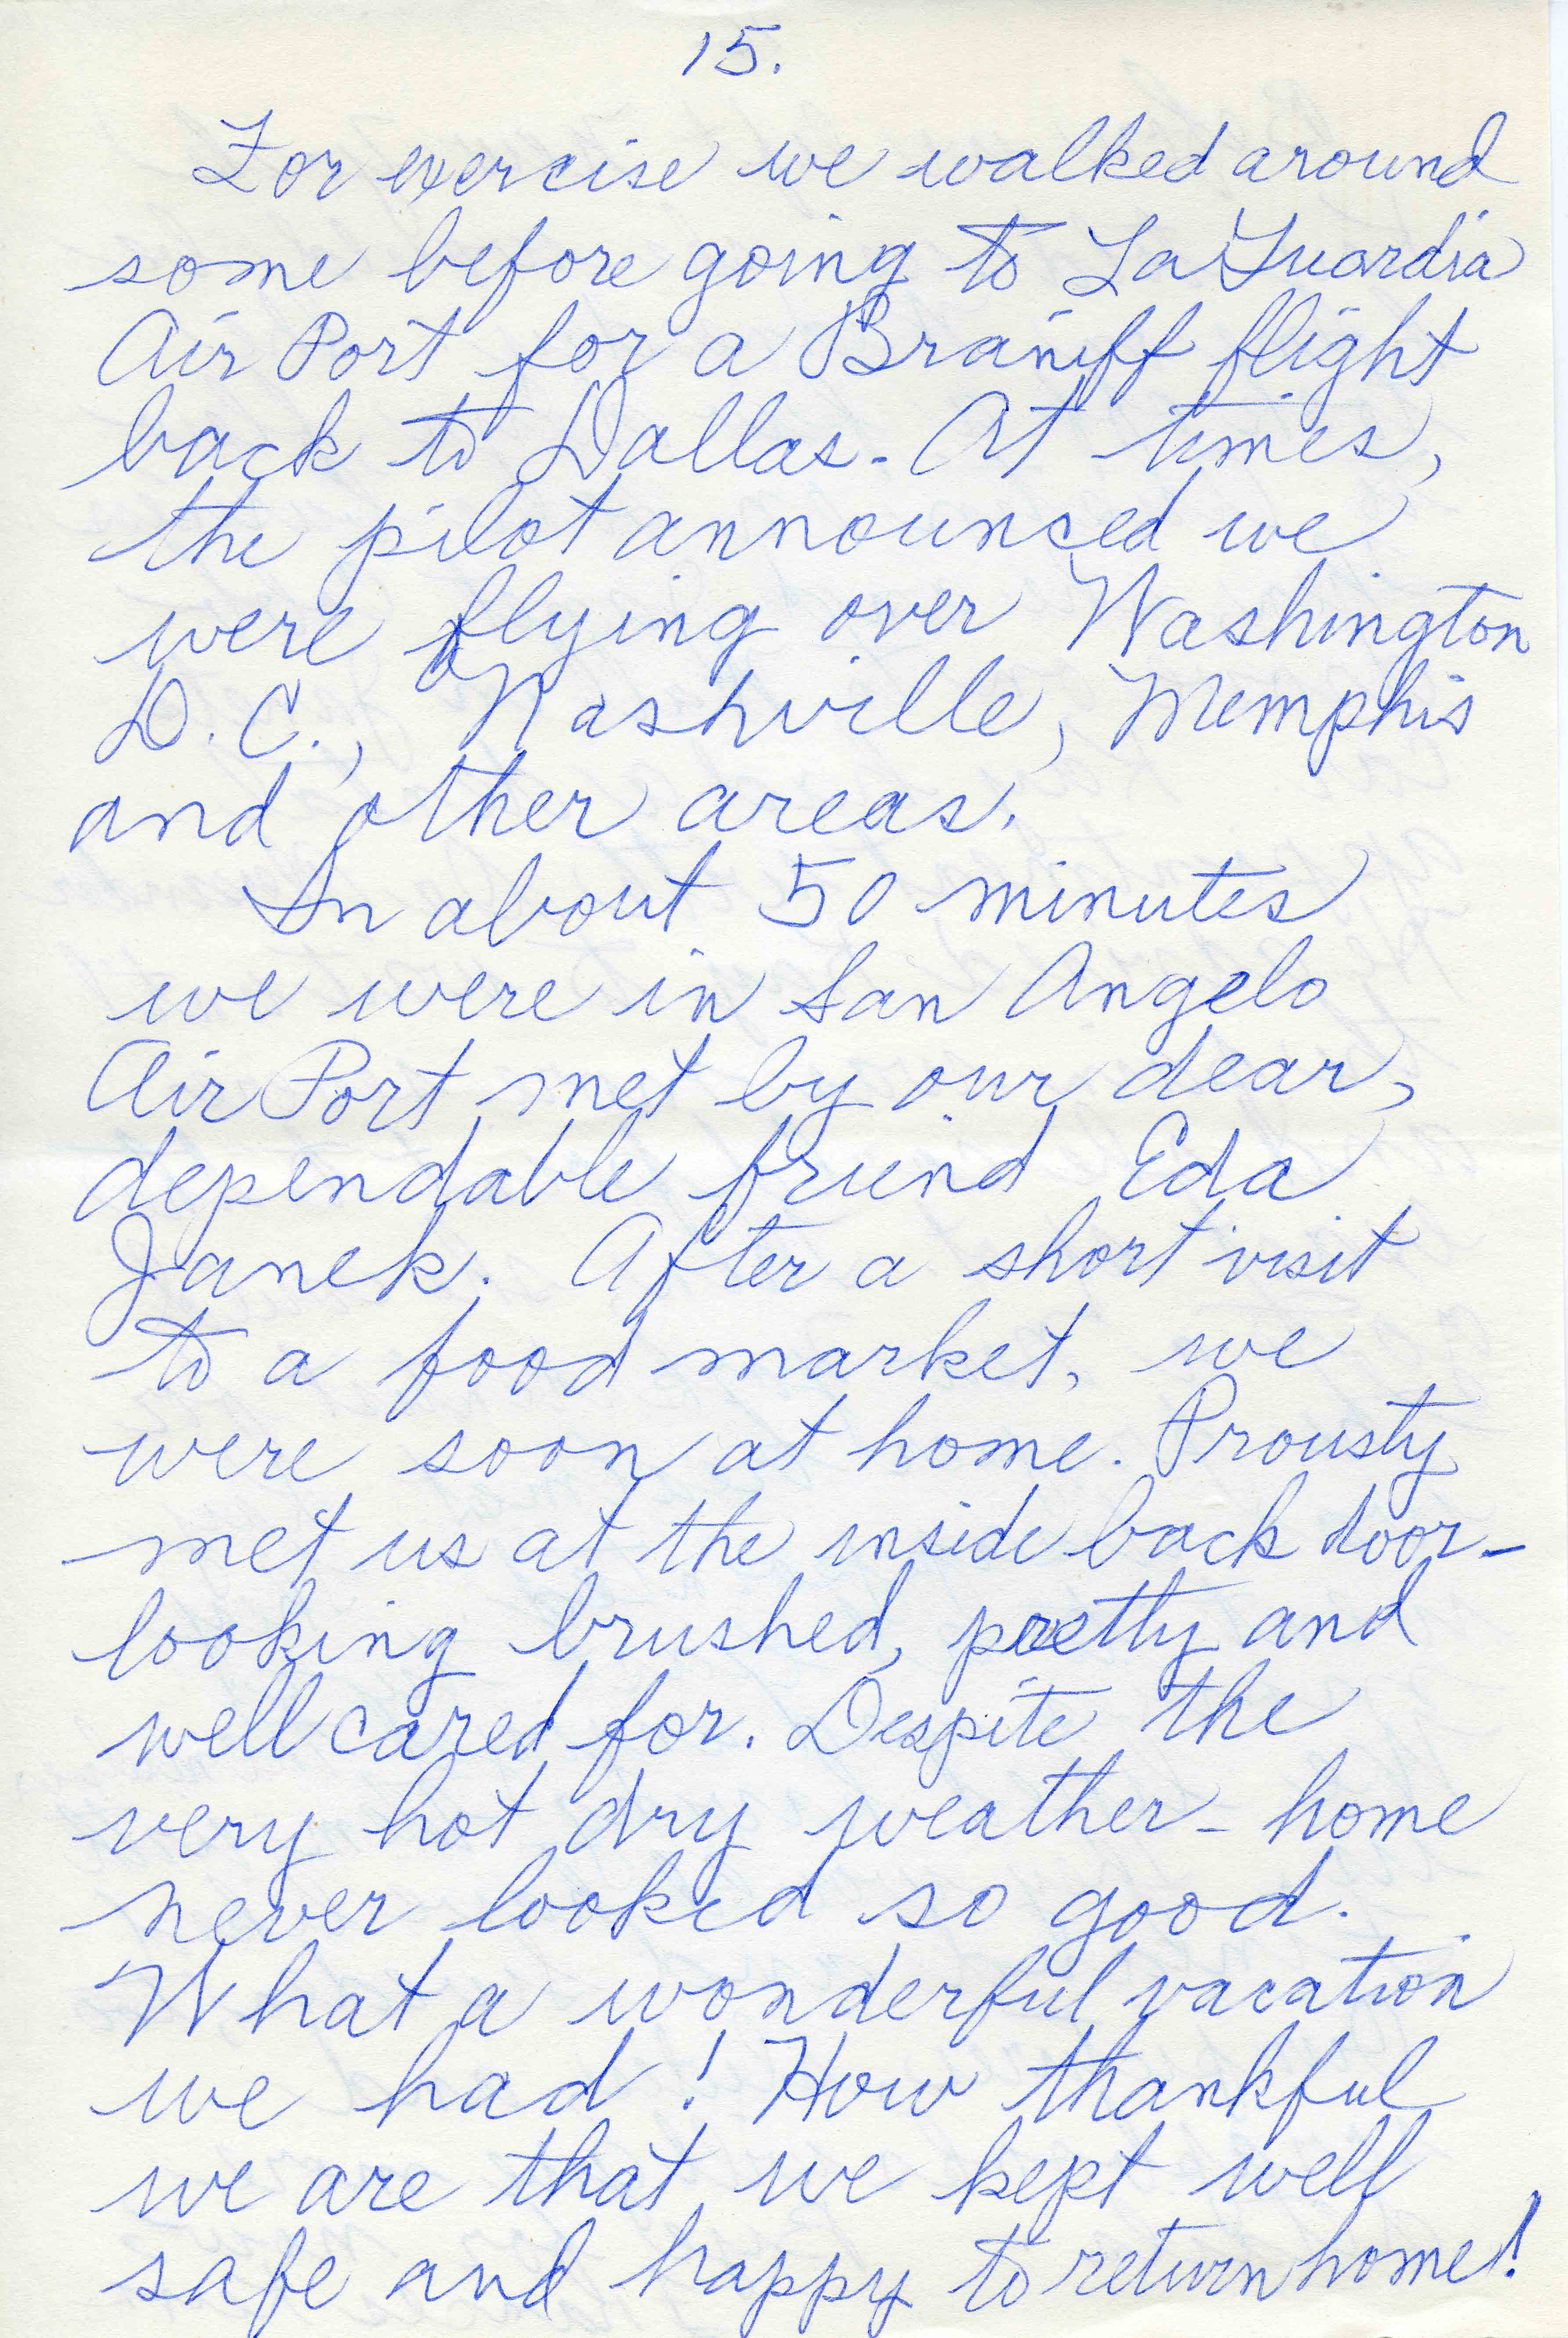 15.
For exercise we walked around
some before going to LaGuardia
Air Port for a Braniff flight
back to Dallas. At times,
the pilot announced we
were flying over Washington
D.C., Nashville, Memphis
and other areas.
In about 50 minutes
we were in San Angelo
Air Port met by our dear,
dependable friend Eda
Janek. After a short visit
to a food market, we
were soon at home. Prousty
met us at the inside back door -
looking brushed, pretty and
well cared for. Despite the
very hot dry weather - home
never looked so good.
What a wonderful vacation
we had! How thankful
we are that we kept well
safe and happy to return home!